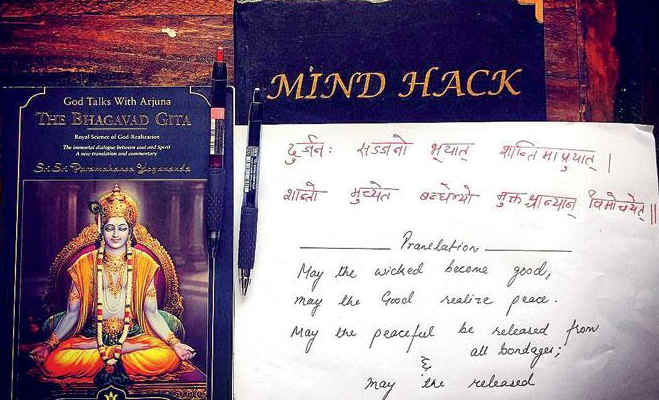 God Talks With Arjuna
THE BHAGAVAD GITA
Royal Science of God-Realization
The immortal dialogue between soul and Spirit
A new translation and commentary
Sri Sri Paramahansa Yogananda
MIND HACK
दुर्जनः सज्जनो भूयात् शान्तिमाप्नुयात् |
शान्तो मुच्येत बन्धेभ्यो मुक्तश्चान्यान् विमोचयेत् ||
Translation
May the wicked become good,
may the Good realize peace.
May the peaceful be released from
all bondages;
&
may the released